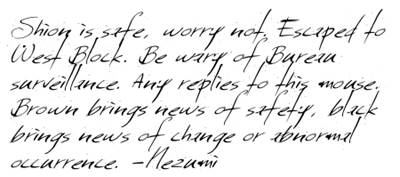 Shion is safe, worry not. Escaped to
West Block. Be wary of Bureau
surveillance. Any replies to this mouse.
Brown brings news of safety, black
brings news of change or abnormal
occurrence. -Nezumi